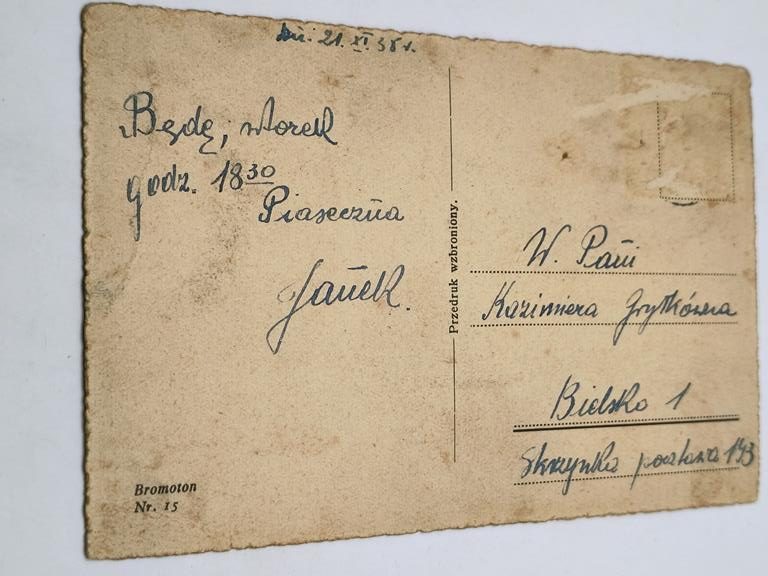 dn. 21. XI. 38 r.
Będę, wtorek
godz. 18 30
Piaseczna
Janek.
Przedruk wzbroniony.
W. Pani
Kazimiera
Bielsko 1
Skrzynka pocztowa 143
Bromoton
Nr. 15